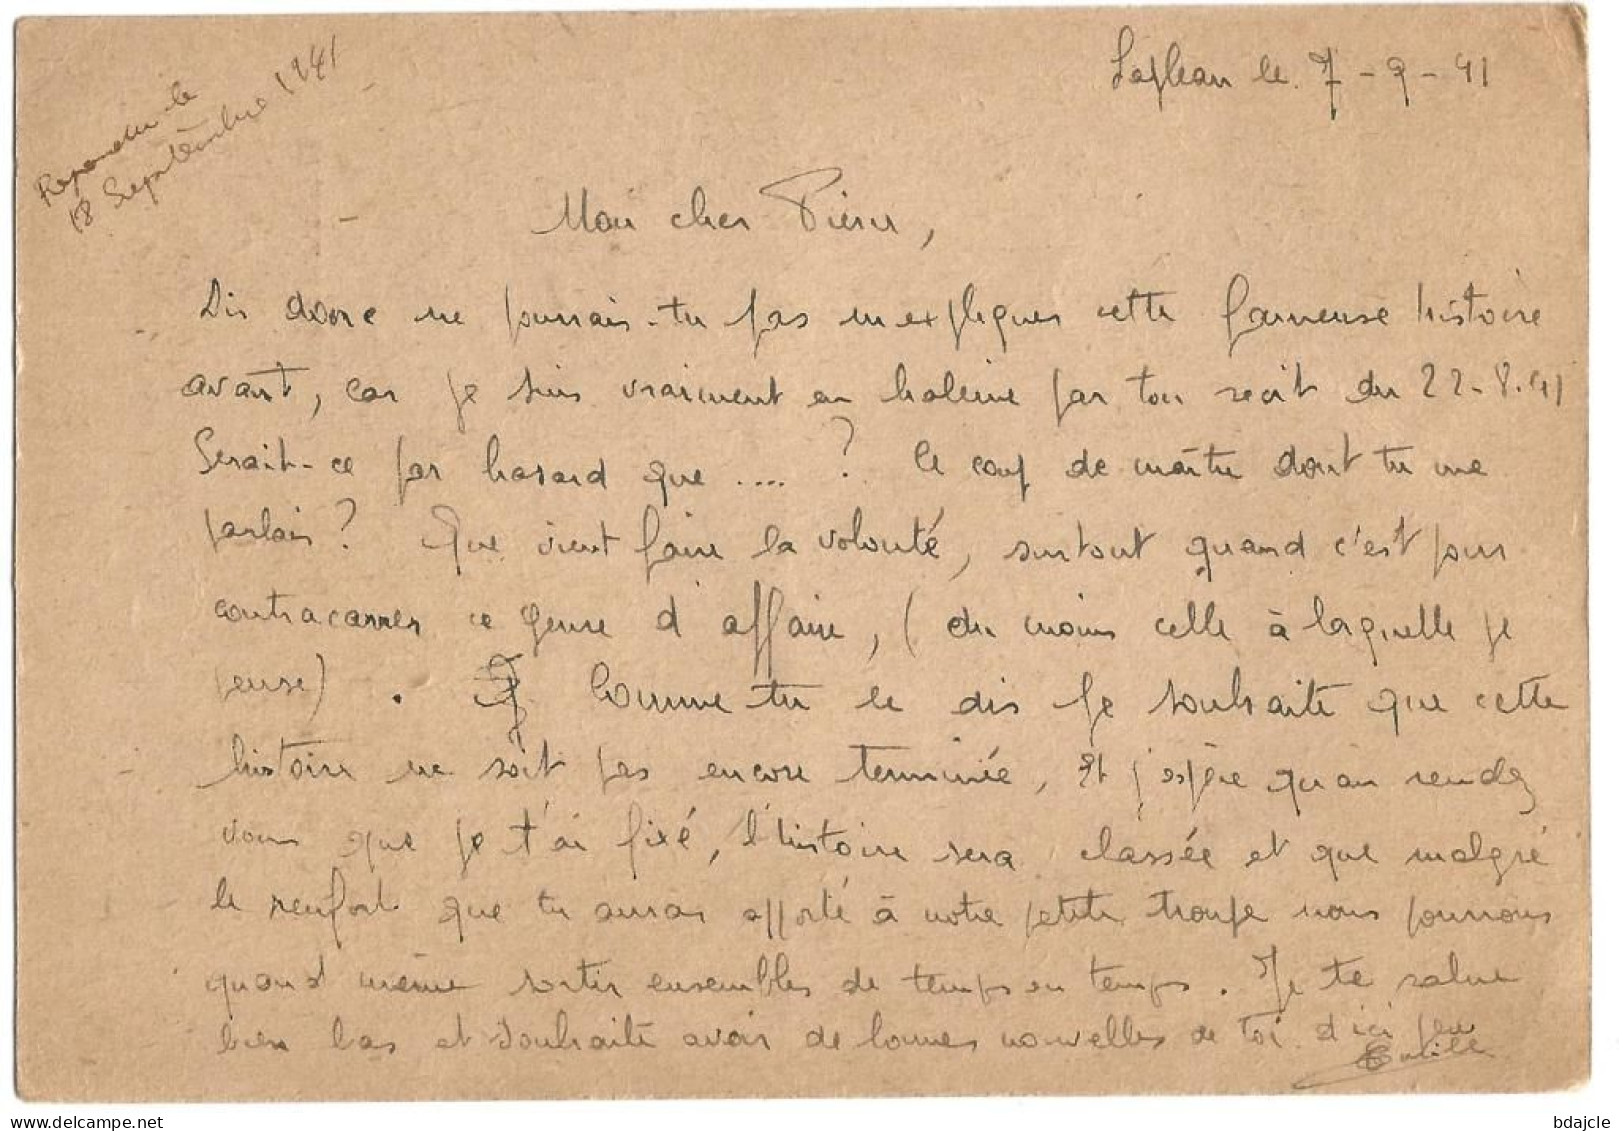 Lapleau le 7-9-41
Repondu le
18 Septembre 1941
Mon cher Pierre,
Dis donc ne pourrais-tu pas m'expliquer cette fameuse histoire
avant, car je suis vraiment en haleine par ton récit du 22-8.41
Serait-ce par hasard que .... ? le coup de maître dont tu me
parlais ? Que vient faire la volonté, surtout quand c'est pour
contracarrer ce genre d'affaire, (du moins celle à laquelle je
pense). Comme tu le dis je souhaite que cette
histoire ne soit pas encore terminée, et j'espère qu'au rendez
vous que je t'ai fixé, l'histoire sera classée et que malgré
le renfort que tu auras apporté à notre petite troupe nous pourrons
quand même sortir ensembles de temps en temps. Je te salue
bien bas et souhaite avoir de bonnes nouvelles de toi d'ici peu
Emile
bdajcle